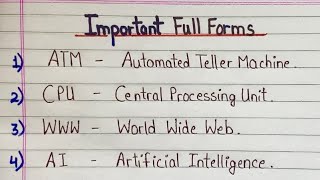 Important Full Forms
1) ATM - Automated Teller Machine.
2) CPU - Central Processing Unit.
3) WWW - World Wide Web.
4) AI - Artificial Intelligence.